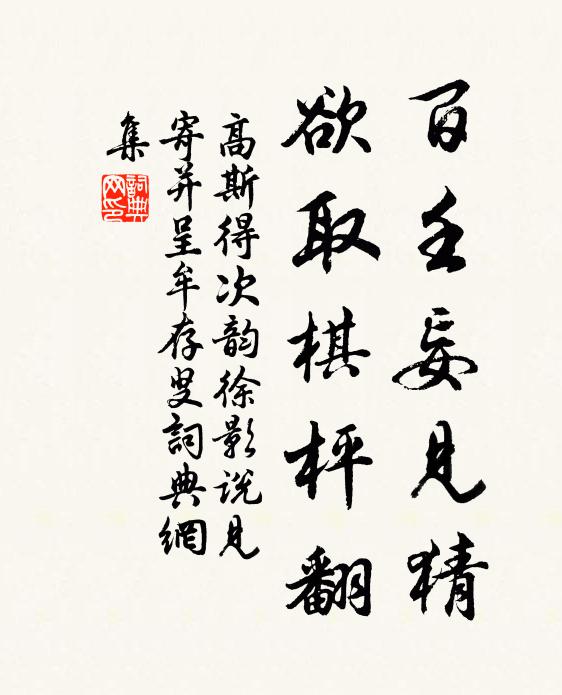 百壬妄見猜
欲取棋枰翻
高斯得次韵徐影说見
寄并呈牟存叟詞典網
集
詞典網印